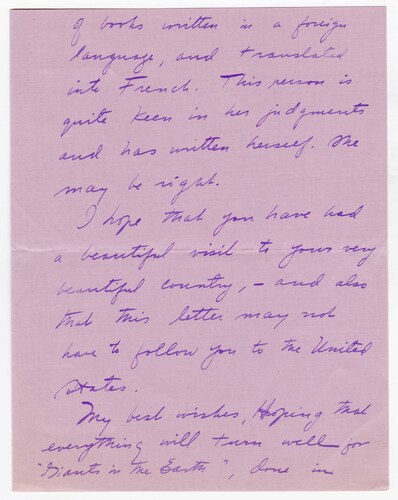 of books written in a foreign
language, and translated
into French. This person is
quite keen in her judgments
and has written herself. She
may be right.
I hope that you have had
a beautiful visit to your very
beautiful country, - and also
that this letter may not
have to follow you to the United
States.
My best wishes, Hoping that
everything will turn well for
"Giants in the Earth", done in